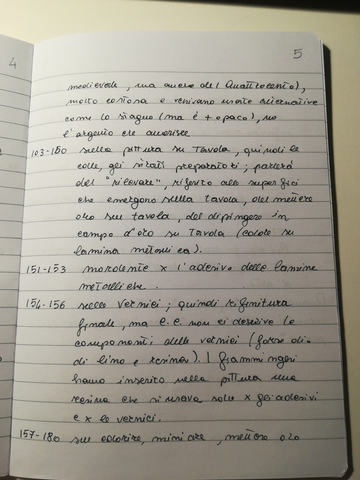 4
5
medievale, ma anche del Quattrocento),
molto costosa e venivano usate alternative
come lo stagno (ma è + opaco), no
l'argento che annerisce
103-150 sulla pittura su Tavola, quindi le
colle, gessi, strati preparatori; parlerà
del "rilevare", riferito alle superfici
che emergono sulla tavola, del mettere
oro su tavola, del dipingere in
campo d'oro su Tavola (colore su
lamina metallica).
151-153 mordente x l'adesivo delle lamine
metalliche.
154-156 sulle vernici; quindi rifinitura
finale, ma C.C. non ci descrive le
componenti delle vernici (forse olio
di lino e resine). I fiamminghi
hanno inserito nella pittura una
resina che si usava solo x gli adesivi
e x le vernici.
157-180 sul colorire, miniare, mettere oro